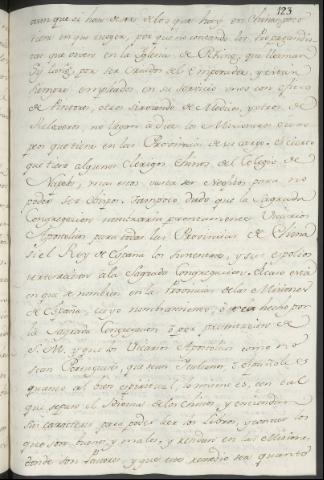 123
aunque si han de ser de los que hay en China, poco
tiene en que escoger, por que no contando los Propagandis-
tas que viven en la Iglesia de Pekin, que llaman
por ser Criados del Emperador, y estan
siempre empleados en su servicio unos con oficio
de Pintores, otros sirviendo de Medicos, y otros de
Reloxeros, no llegan a diez los Misioneros euro-
peos que tiene en las Provincias de su cargo. Es cierto
que tiene algunos Clerigos Chinos del Colegio de
Napoles, mas estos basta ser Neofitos para no
poder ser Obispos. Tampoco dudo que la Sagrada
Congregacion nombrarà prontamente Vicarios
Apostolicos para todas las Provincias de China
si el Rey de España los sustentare, y sus espolios
à la Sagrada Congregacion. El caso està
en que se nombren en la Provincia de las Misiones
de España, cuyo nombramiento, ò sea hecho por
la Sagrada Congregacion ò por presentacion de
S. M. y que los Vicarios Apostolicos como no
sean Portugueses, que sean Italianos, ò Españoles
quanto al bien espiritual lo mismo es, con tal
que sepan el Idioma de los Chinos, y entiendan
sus caracteres para poder leer los Libros, y conocer los
que son buenos, y malos, y residan en las Misiones
donde son Pastores, y que este remedio sea quanto